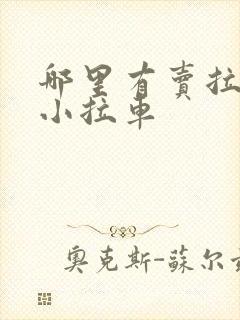 哪里有賣拉
小拉車
奧克斯-蘇尔